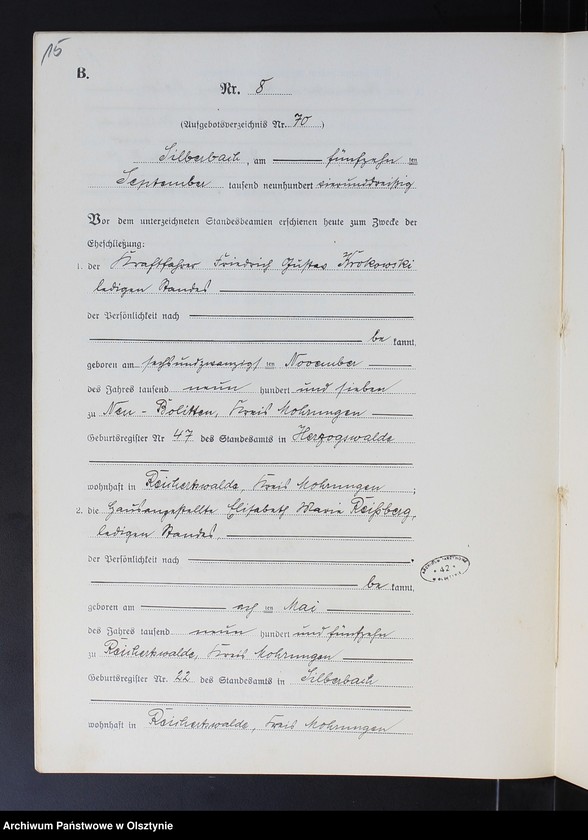 15
B.
Nr. 8
(Aufgebotsverzeichnis Nr. 70)
Silberbach, am fünfzehn ten
September tausend neunhundert vierunddreißig
Vor dem unterzeichneten Standesbeamten erschienen heute zum Zwecke der
Eheschließung:
1. der Kraftfahrer Friedrich Gustav Krokowski
ledigen Standes
der Persönlichkeit nach
be kannt,
geboren am sechsundzwanzigst ten November
des Jahres tausend neun hundert und sieben
zu Neu-Bolitten, Kreis Mohrungen
Geburtsregister Nr 47 des Standesamts in Herzogswalde
wohnhaft in Reichertswalde, Kreis Mohrungen;
2. die Hausangestellte Elisabeth Marie Reißberg,
ledigen Standes,
der Persönlichkeit nach
be kannt,
geboren am ach ten Mai
des Jahres tausend neun hundert und fünfzehn
zu Reichertswalde, Kreis Mohrungen
Geburtsregister Nr. 22 des Standesamts in Silberbach
wohnhaft in Reichertswalde, Kreis Mohrungen
42
Archiwum Państwowe w Olsztynie